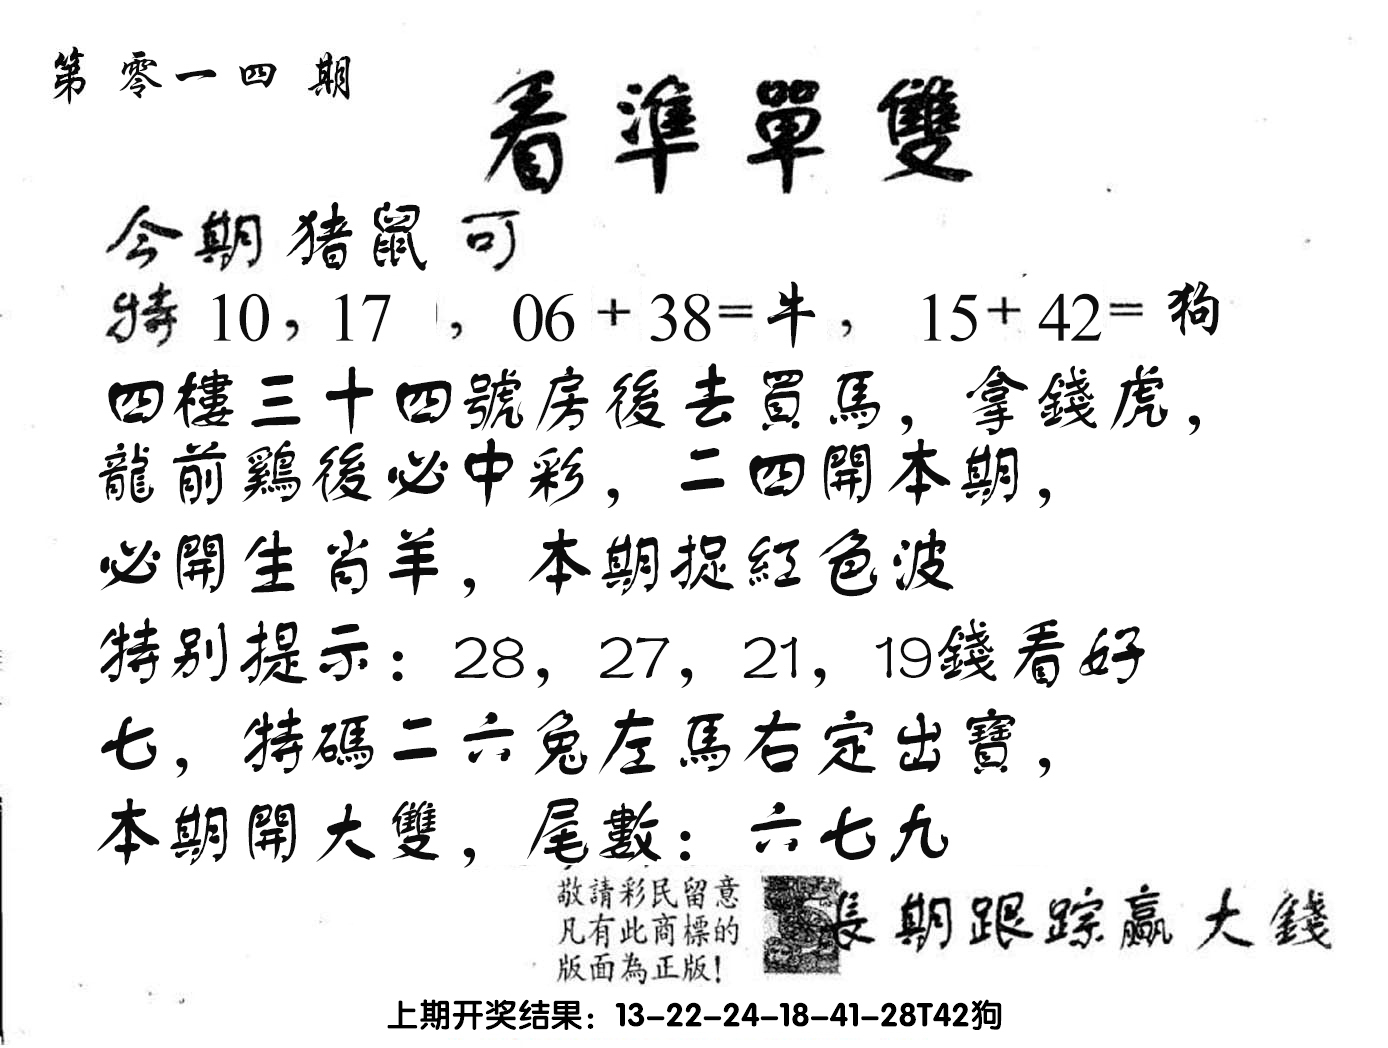 第零一四期
看準單雙
今期猪鼠可
特10，17，06+38=牛，15+42=狗
四樓三十四號房後去買馬，拿錢虎，
龍前鷄後必中彩，二四開本期，
必開生肖羊，本期捉紅色波
特别提示：28，27，21，19錢看好
七，特碼二六兔左馬右定出寶，
本期開大雙，尾數：六七九
敬請彩民留意
凡有此商標的
版面為正版！
長期跟踪赢大錢
上期开奖结果：13-22-24-18-41-28T42狗